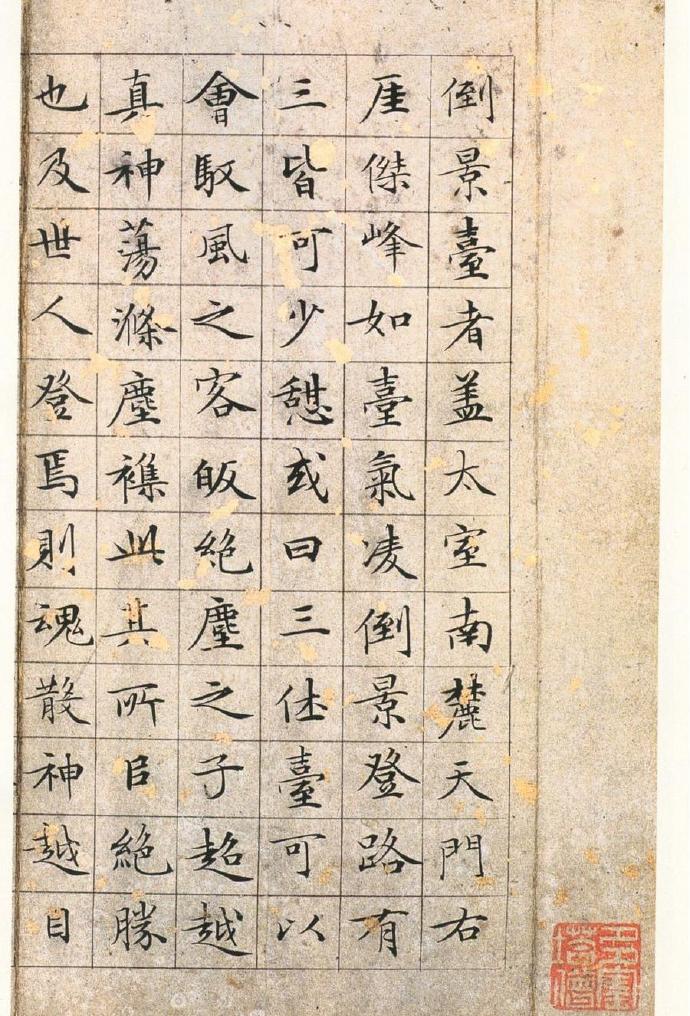 倒景臺者盖太室南麓天門右
厓傑峰如臺氣凌倒景登路有
三皆可少憇或曰三休臺可以
會馭風之客皈絕塵之子超越
真神蕩滌塵襟此其所㠯絕勝
也及世人登焉則魂散神越目